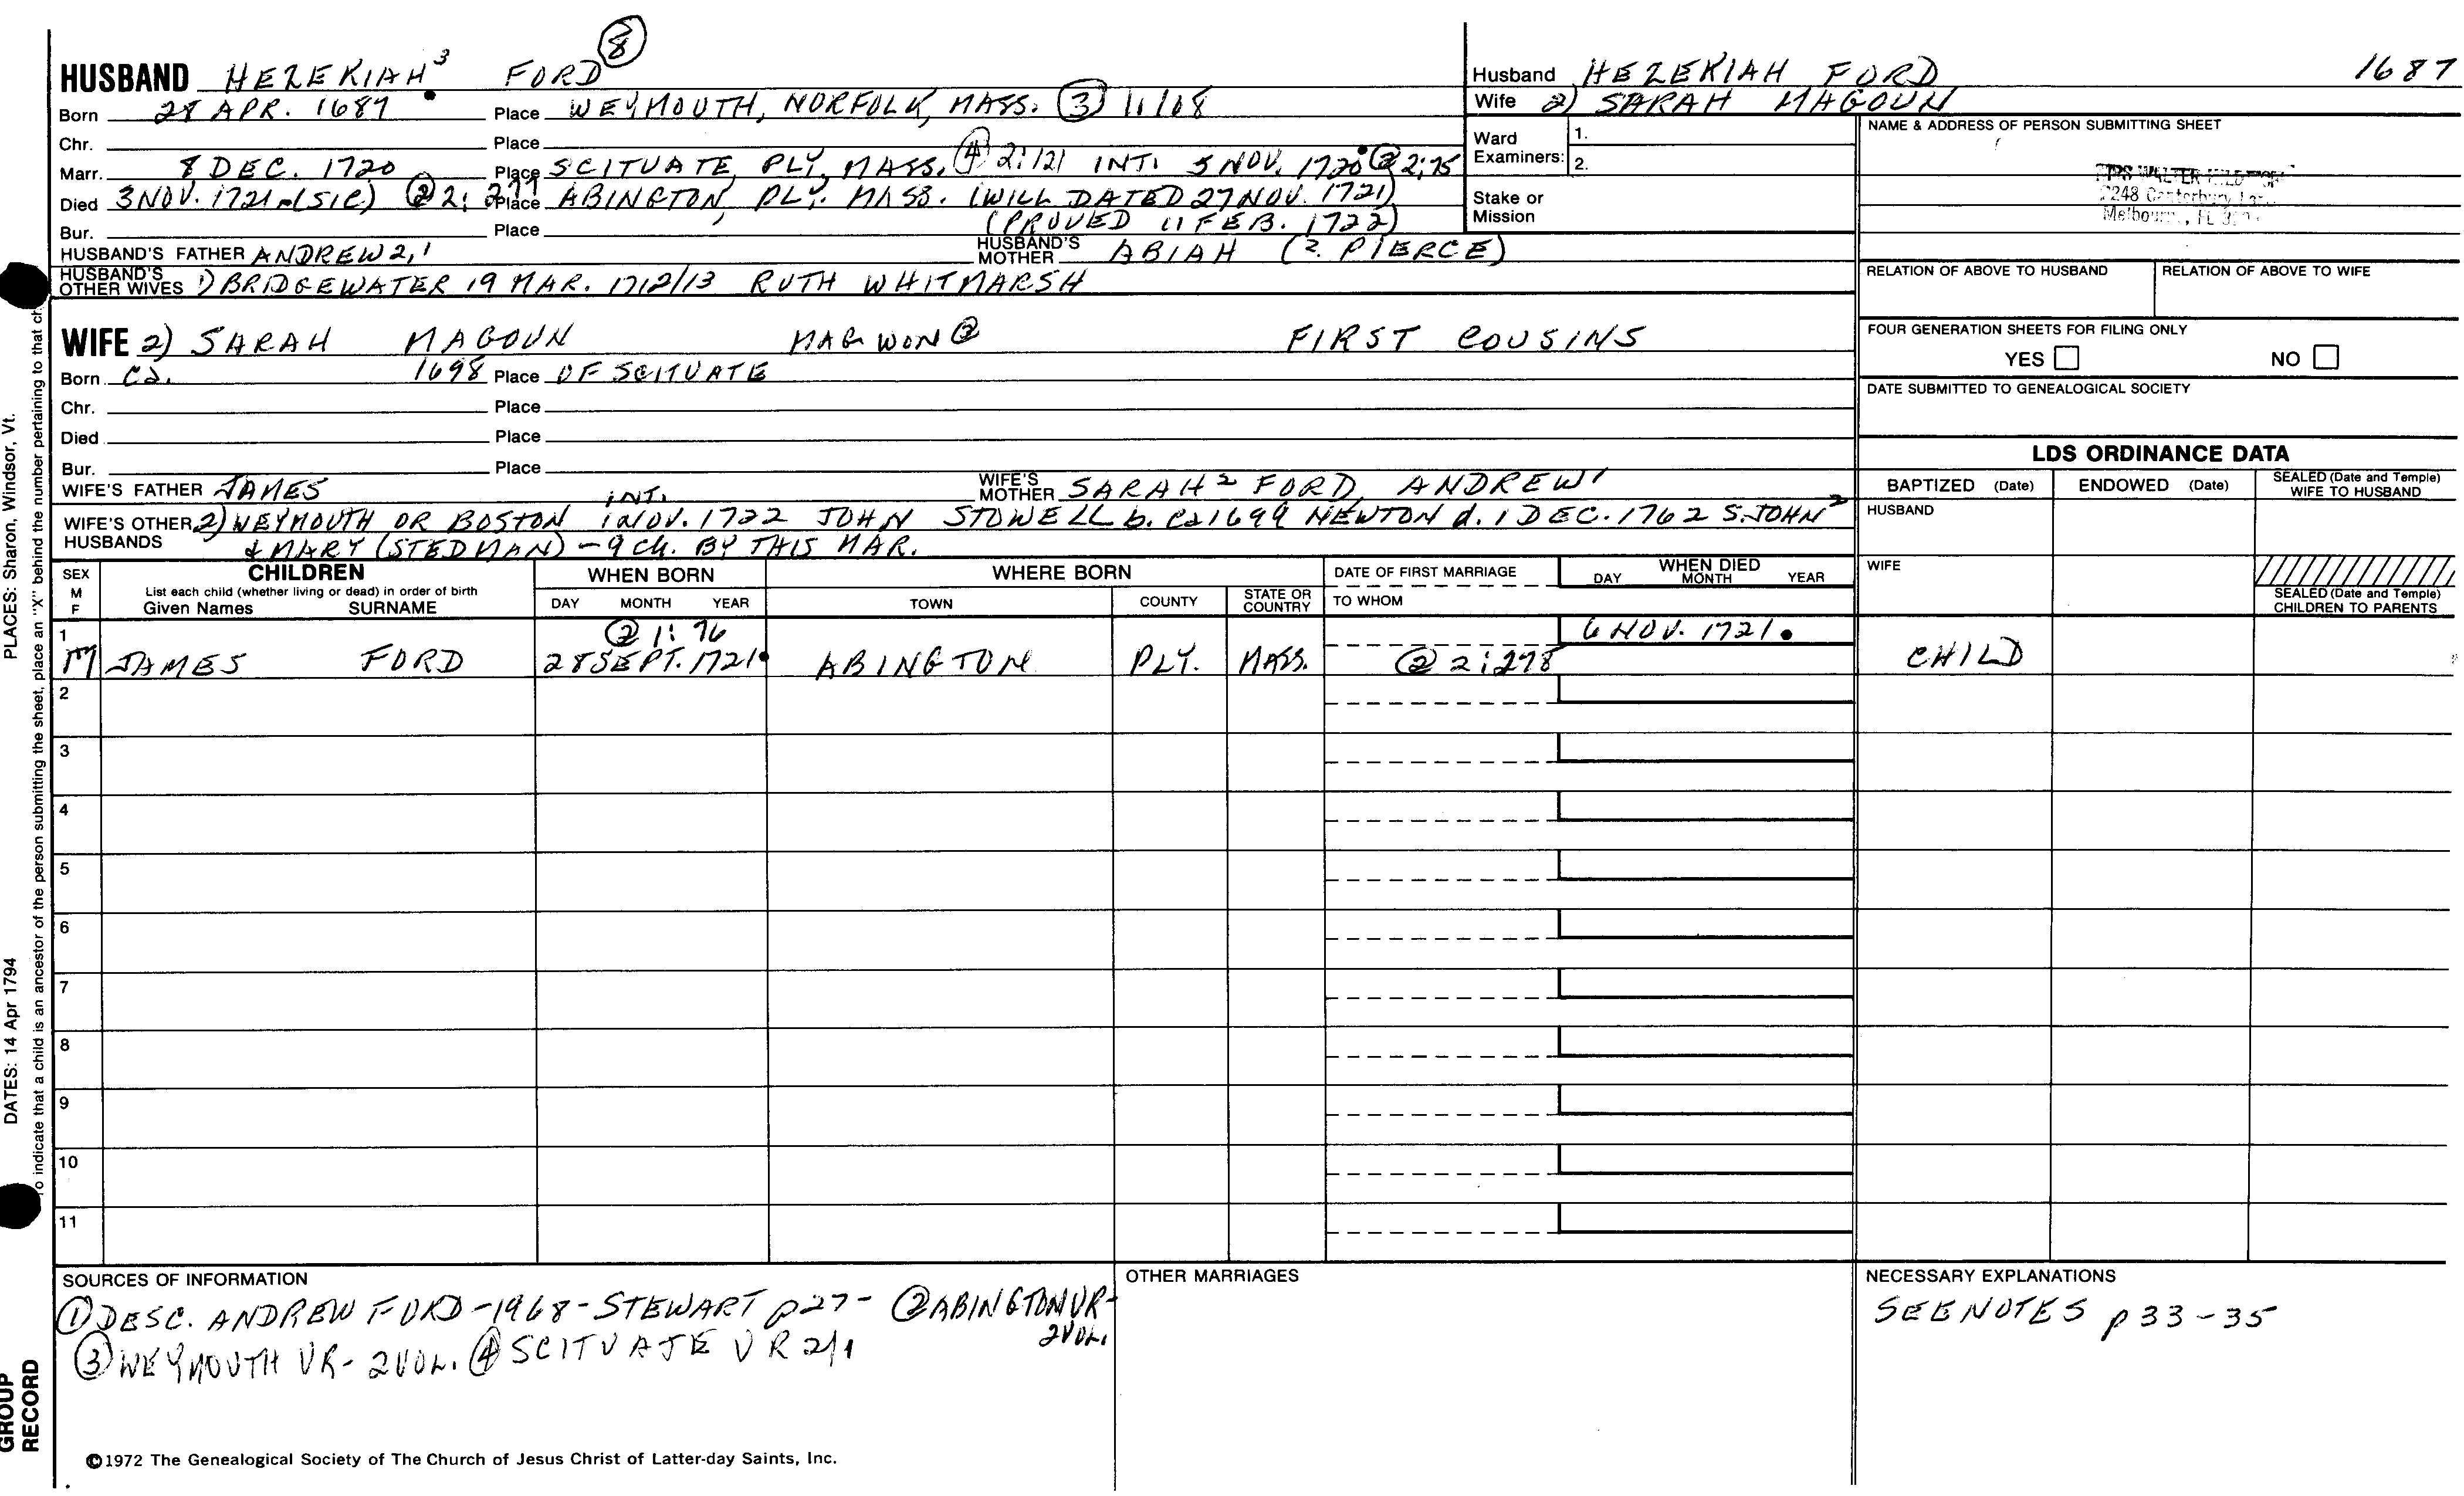 8
HUSBAND HEZEKIAH 3 FORD
Born 28 APR. 1687 Place WEYMOUTH, NORFOLK, MASS. 3 1:108
Chr. Place
Marr. 8 DEC. 1720 Place SCITUATE, PLY. MASS. 4 2:121 INT. 5 NOV. 1720 2 2:75
Died 3 NOV. 1721 (SIC) 2 2:277 Place ABINGTON, PLY. MASS. (WILL DATED 27 NOV. 1721)
Bur. Place (PROVED 11 FEB. 1722)
HUSBAND'S FATHER ANDREW 2,1 HUSBAND'S MOTHER ABIAH (?. PIERCE)
HUSBAND'S OTHER WIVES 1) BRIDGEWATER 19 MAR. 1712/13 RUTH WHITMARSH
WIFE 2) SARAH MAGOUN MAGWON 2 FIRST COUSINS
Born Ca. 1698 Place OF SCITUATE
Chr. Place
Died Place
Bur. Place
WIFE'S FATHER JAMES WIFE'S MOTHER SARAH 2 FORD, ANDREW 1
INT.
WIFE'S OTHER HUSBANDS 2) WEYMOUTH OR BOSTON 1 NOV. 1722 JOHN STOWELL b. Ca 1699 NEWTON d. 1 DEC. 1762 S. JOHN 2
& MARY (STEDMAN) - 9 CH. BY THIS MAR.
Husband HEZEKIAH FORD 1687
Wife 2) SARAH MAGOUN
Ward Examiners: 1.
2.
Stake or Mission
NAME & ADDRESS OF PERSON SUBMITTING SHEET
MRS WALTER
Canterbury
FL
RELATION OF ABOVE TO HUSBAND RELATION OF ABOVE TO WIFE
FOUR GENERATION SHEETS FOR FILING ONLY
YES NO
DATE SUBMITTED TO GENEALOGICAL SOCIETY
LDS ORDINANCE DATA
BAPTIZED (Date) ENDOWED (Date) SEALED (Date and Temple) WIFE TO HUSBAND
HUSBAND
WIFE
SEALED (Date and Temple) CHILDREN TO PARENTS
SEX M F CHILDREN WHEN BORN WHERE BORN DATE OF FIRST MARRIAGE WHEN DIED
List each child (whether living or dead) in order of birth
Given Names SURNAME DAY MONTH YEAR TOWN COUNTY STATE OR COUNTRY TO WHOM DAY MONTH YEAR
1 2 1:76 6 NOV. 1721
M JAMES FORD 28 SEPT. 1721 ABINGTON PLY. MASS. 2 2:278 CHILD
2
3
4
5
6
7
8
9
10
11
SOURCES OF INFORMATION
1 DESC. ANDREW FORD-1968-STEWART p27- 2 ABINGTON VR-
2 VOL.
3 WEYMOUTH VR- 2 VOL. 4 SCITUATE VR
OTHER MARRIAGES
NECESSARY EXPLANATIONS
SEE NOTES p 33-35
©1972 The Genealogical Society of The Church of Jesus Christ of Latter-day Saints, Inc.
PLACES: Sharon, Windsor, Vt.
DATES: 14 Apr 1794
GROUP RECORD
To indicate that a child is an ancestor of the person submitting the sheet, place an "X" behind the number pertaining to that